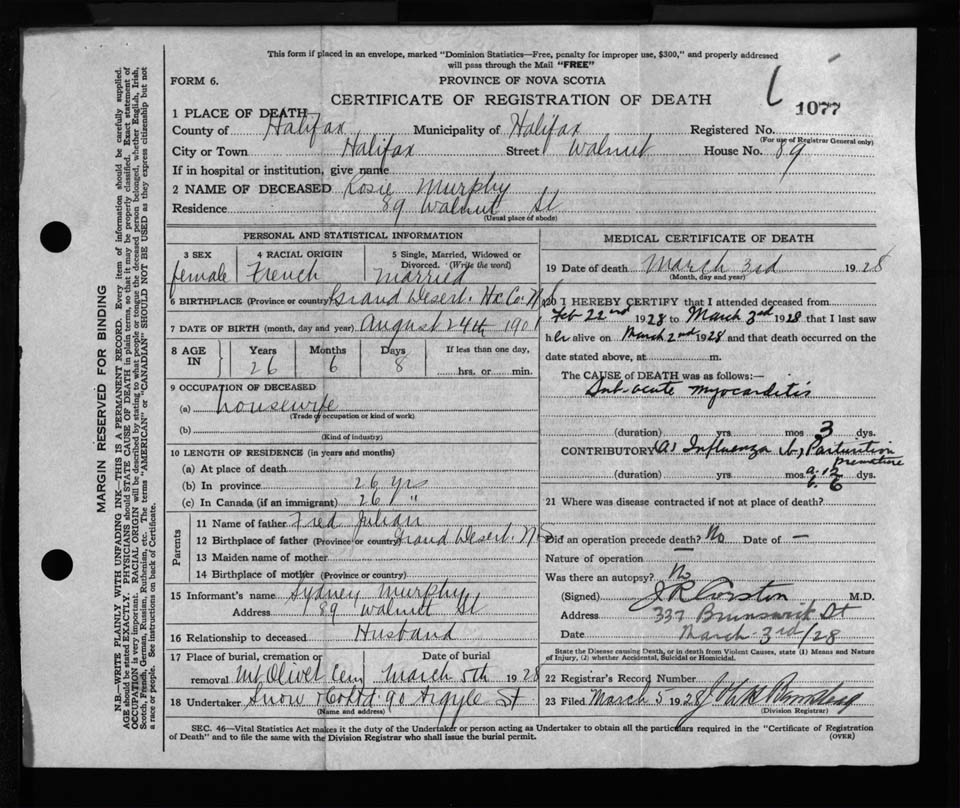 This form if placed in an envelope, marked "Dominion Statistics—Free, penalty for improper use, $300," and properly addressed
will pass through the Mail "FREE"
FORM 6.
PROVINCE OF NOVA SCOTIA
CERTIFICATE OF REGISTRATION OF DEATH
1077
1 PLACE OF DEATH
County of Halifax Municipality of Halifax Registered No.
(For use of Registrar General only)
City or Town Halifax Street Walnut House No. 89
If in hospital or institution, give name
2 NAME OF DECEASED Rosie Murphy
Residence 89 Walnut St
(Usual place of abode)
PERSONAL AND STATISTICAL INFORMATION
3 SEX 4 RACIAL ORIGIN 5 Single, Married, Widowed or
Divorced. (Write the word)
female French Married
6 BIRTHPLACE (Province or country) Grand Desert. Hx. Co. N.S
7 DATE OF BIRTH (month, day and year) August 24th 1901
8 AGE IN Years Months Days If less than one day,
26 6 8 hrs. or min.
9 OCCUPATION OF DECEASED
(a) housewife
(Trade or occupation or kind of work)
(b)
(Kind of industry)
10 LENGTH OF RESIDENCE (in years and months)
(a) At place of death
(b) In province 26 yrs
(c) In Canada (if an immigrant) 26 "
Parents
11 Name of father Fred Julian
12 Birthplace of father (Province or country) Grand Desert. N S
13 Maiden name of mother
14 Birthplace of mother (Province or country)
15 Informant's name Sydney Murphy
Address 89 Walnut St
16 Relationship to deceased Husband
17 Place of burial, cremation or Date of burial
removal Mt Olivet Cem March 5th 1928
18 Undertaker Snow & Co Ltd 90 Argyle St
(Name and address)
MEDICAL CERTIFICATE OF DEATH
19 Date of death March 3rd 1928
(Month, day and year)
20 I HEREBY CERTIFY that I attended deceased from
Feb 22nd 1928 to March 3rd 1928 that I last saw
her alive on March 2nd 1928 and that death occurred on the
date stated above, at m.
The CAUSE of DEATH was as follows:—
Sub-acute myocarditis
(duration) yrs mos 3 dys.
CONTRIBUTORY (a) Influenza (b) Parturition
premature
(duration) yrs. mos a. 12 dys.
b. 6
21 Where was disease contracted if not at place of death?
Did an operation precede death? No Date of —
Nature of operation —
Was there an autopsy? No
(Signed) J R Corston M.D.
Address 337 Brunswick St
Date March 3rd/28
State the Disease causing Death, or in death from Violent Causes, state (1) Means and Nature
of Injury, (2) whether Accidental, Suicidal or Homicidal.
22 Registrar's Record Number
23 Filed March 5 1928
(Division Registrar)
SEC. 46—Vital Statistics Act makes it the duty of the Undertaker or person acting as Undertaker to obtain all the particulars required in the "Certificate of Registration
of Death" and to file the same with the Division Registrar who shall issue the burial permit.
(OVER)
MARGIN RESERVED FOR BINDING
N.B.—WRITE PLAINLY WITH UNFADING INK—THIS IS A PERMANENT RECORD. Every item of information should be carefully supplied.
AGE should be stated EXACTLY. PHYSICIANS should STATE CAUSE OF DEATH in plain terms, so that it may be properly classified. Exact statement of
OCCUPATION is very important. RACIAL ORIGIN will be described by stating to what people or tongue the deceased person belonged, whether English, Irish,
Scotch, French, German, Russian, Ruthenian, etc. The terms "AMERICAN" or "CANADIAN" SHOULD NOT BE USED as they express citizenship but not
a race or people. See instructions on back of Certificate.